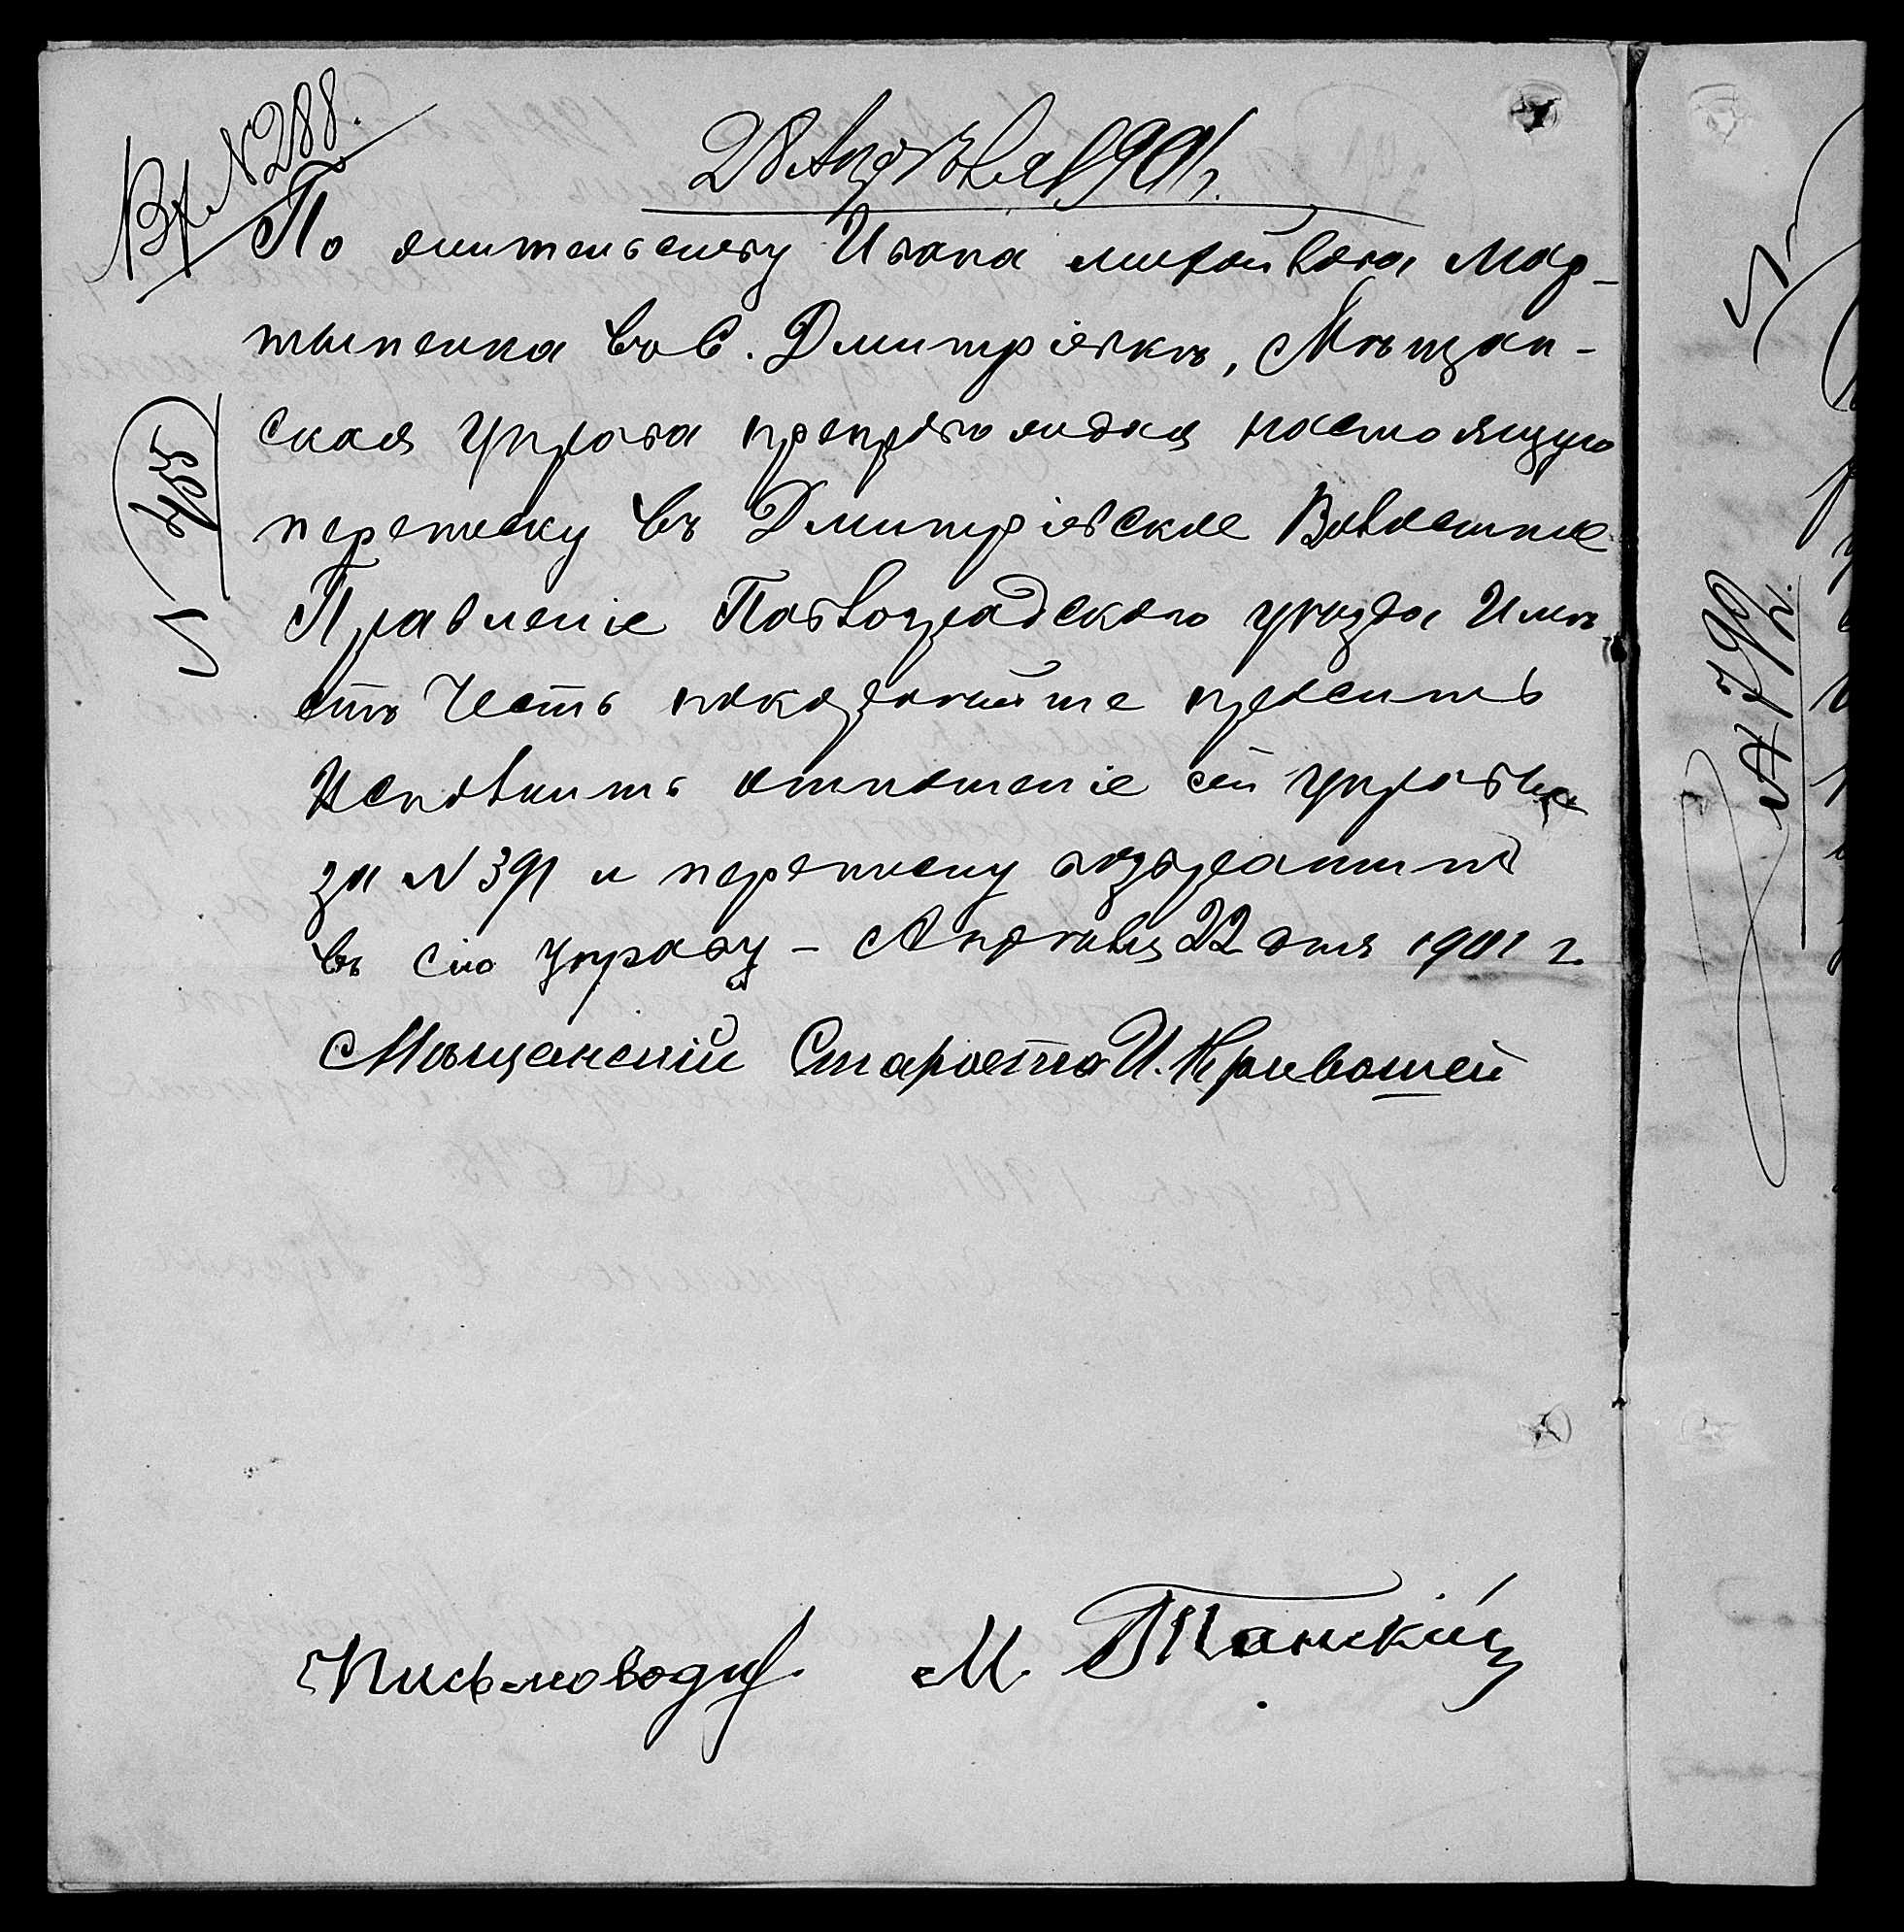 Вх. N 288.
28 Апрѣля 1901 г.
По жительству Ивана Михайлова Мар-
тыненка въ С. Дмитріевкѣ, Мѣщан-
ская Управа препровождая настоящую
переписку въ Дмитріевское Волостное
Правленіе Павлоградского уѣзда Имѣ
етъ Честь покорнѣйше просить
Исполнить отношеніе сей Управы
за N 391 и переписку возвратить
въ сію Управу - Апрѣля 22 дня 1901 г.
Мѣщанскій Староста И. Кривошей
Письмоводит.
М.
455